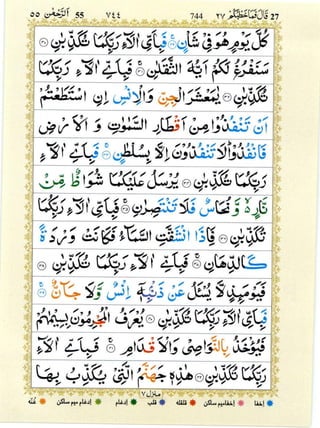 اَلرَّحْمٰن ٥٥ 55 ٧٤٤ 744 ٢٧ قَالَ فَمَا خَطْبُكُمْ 27
كُلَّ يَوْمٍ هُوَ فِىْ شَاْنٍ ۚ فَبِاَىِّ اٰلَآءِ رَبِّكُمَا تُكَذِّبٰنِ
سَنَفْرُغُ لَكُمْ اَيُّهَ الثَّقَلٰنِ ۚ فَبِاَىِّ اٰلَآءِ رَبِّكُمَا
تُكَذِّبٰنِ يٰمَعْشَرَ الْجِنِّ وَالْاِنْسِ اِنِ اسْتَطَعْتُمْ
اَنْ تَنْفُذُوْا مِنْ اَقْطَارِ السَّمٰوٰتِ وَ الْاَرْضِ
فَانْفُذُوْا ؕ لَا تَنْفُذُوْنَ اِلَّا بِسُلْطٰنٍ ۚ فَبِاَىِّ اٰلَآءِ
رَبِّكُمَا تُكَذِّبٰنِ يُرْسَلُ عَلَيْكُمَا شُوَاظٌ مِّنْ
نَّارٍ ۙ وَّ نُحَاسٌ فَلَا تَنْتَصِرٰنِ ۚ فَبِاَىِّ اٰلَآءِ رَبِّكُمَا
تُكَذِّبٰنِ فَاِذَا انْشَقَّتِ السَّمَآءُ فَكَانَتْ وَرْدَةً
كَالدِّهَانِ ۚ فَبِاَىِّ اٰلَآءِ رَبِّكُمَا تُكَذِّبٰنِ
فَيَوْمَئِذٍ لَّا يُسْـَٔلُ عَنْ ذَنْۢبِهٖۤ اِنْسٌ وَّلَا جَآنٌّ ۚ
فَبِاَىِّ اٰلَآءِ رَبِّكُمَا تُكَذِّبٰنِ يُعْرَفُ الْمُجْرِمُوْنَ بِسِيْمٰهُمْ
فَيُؤْخَذُ بِالنَّوَاصِىْ وَالْاَقْدَامِ ۚ فَبِاَىِّ اٰلَآءِ
رَبِّكُمَا تُكَذِّبٰنِ هٰذِهٖ جَهَنَّمُ الَّتِىْ يُكَذِّبُ بِهَا
منزل ٧
اخفا اخفا میم ساکن قلقلہ قلب ادغام ادغام میم ساکن غنہ